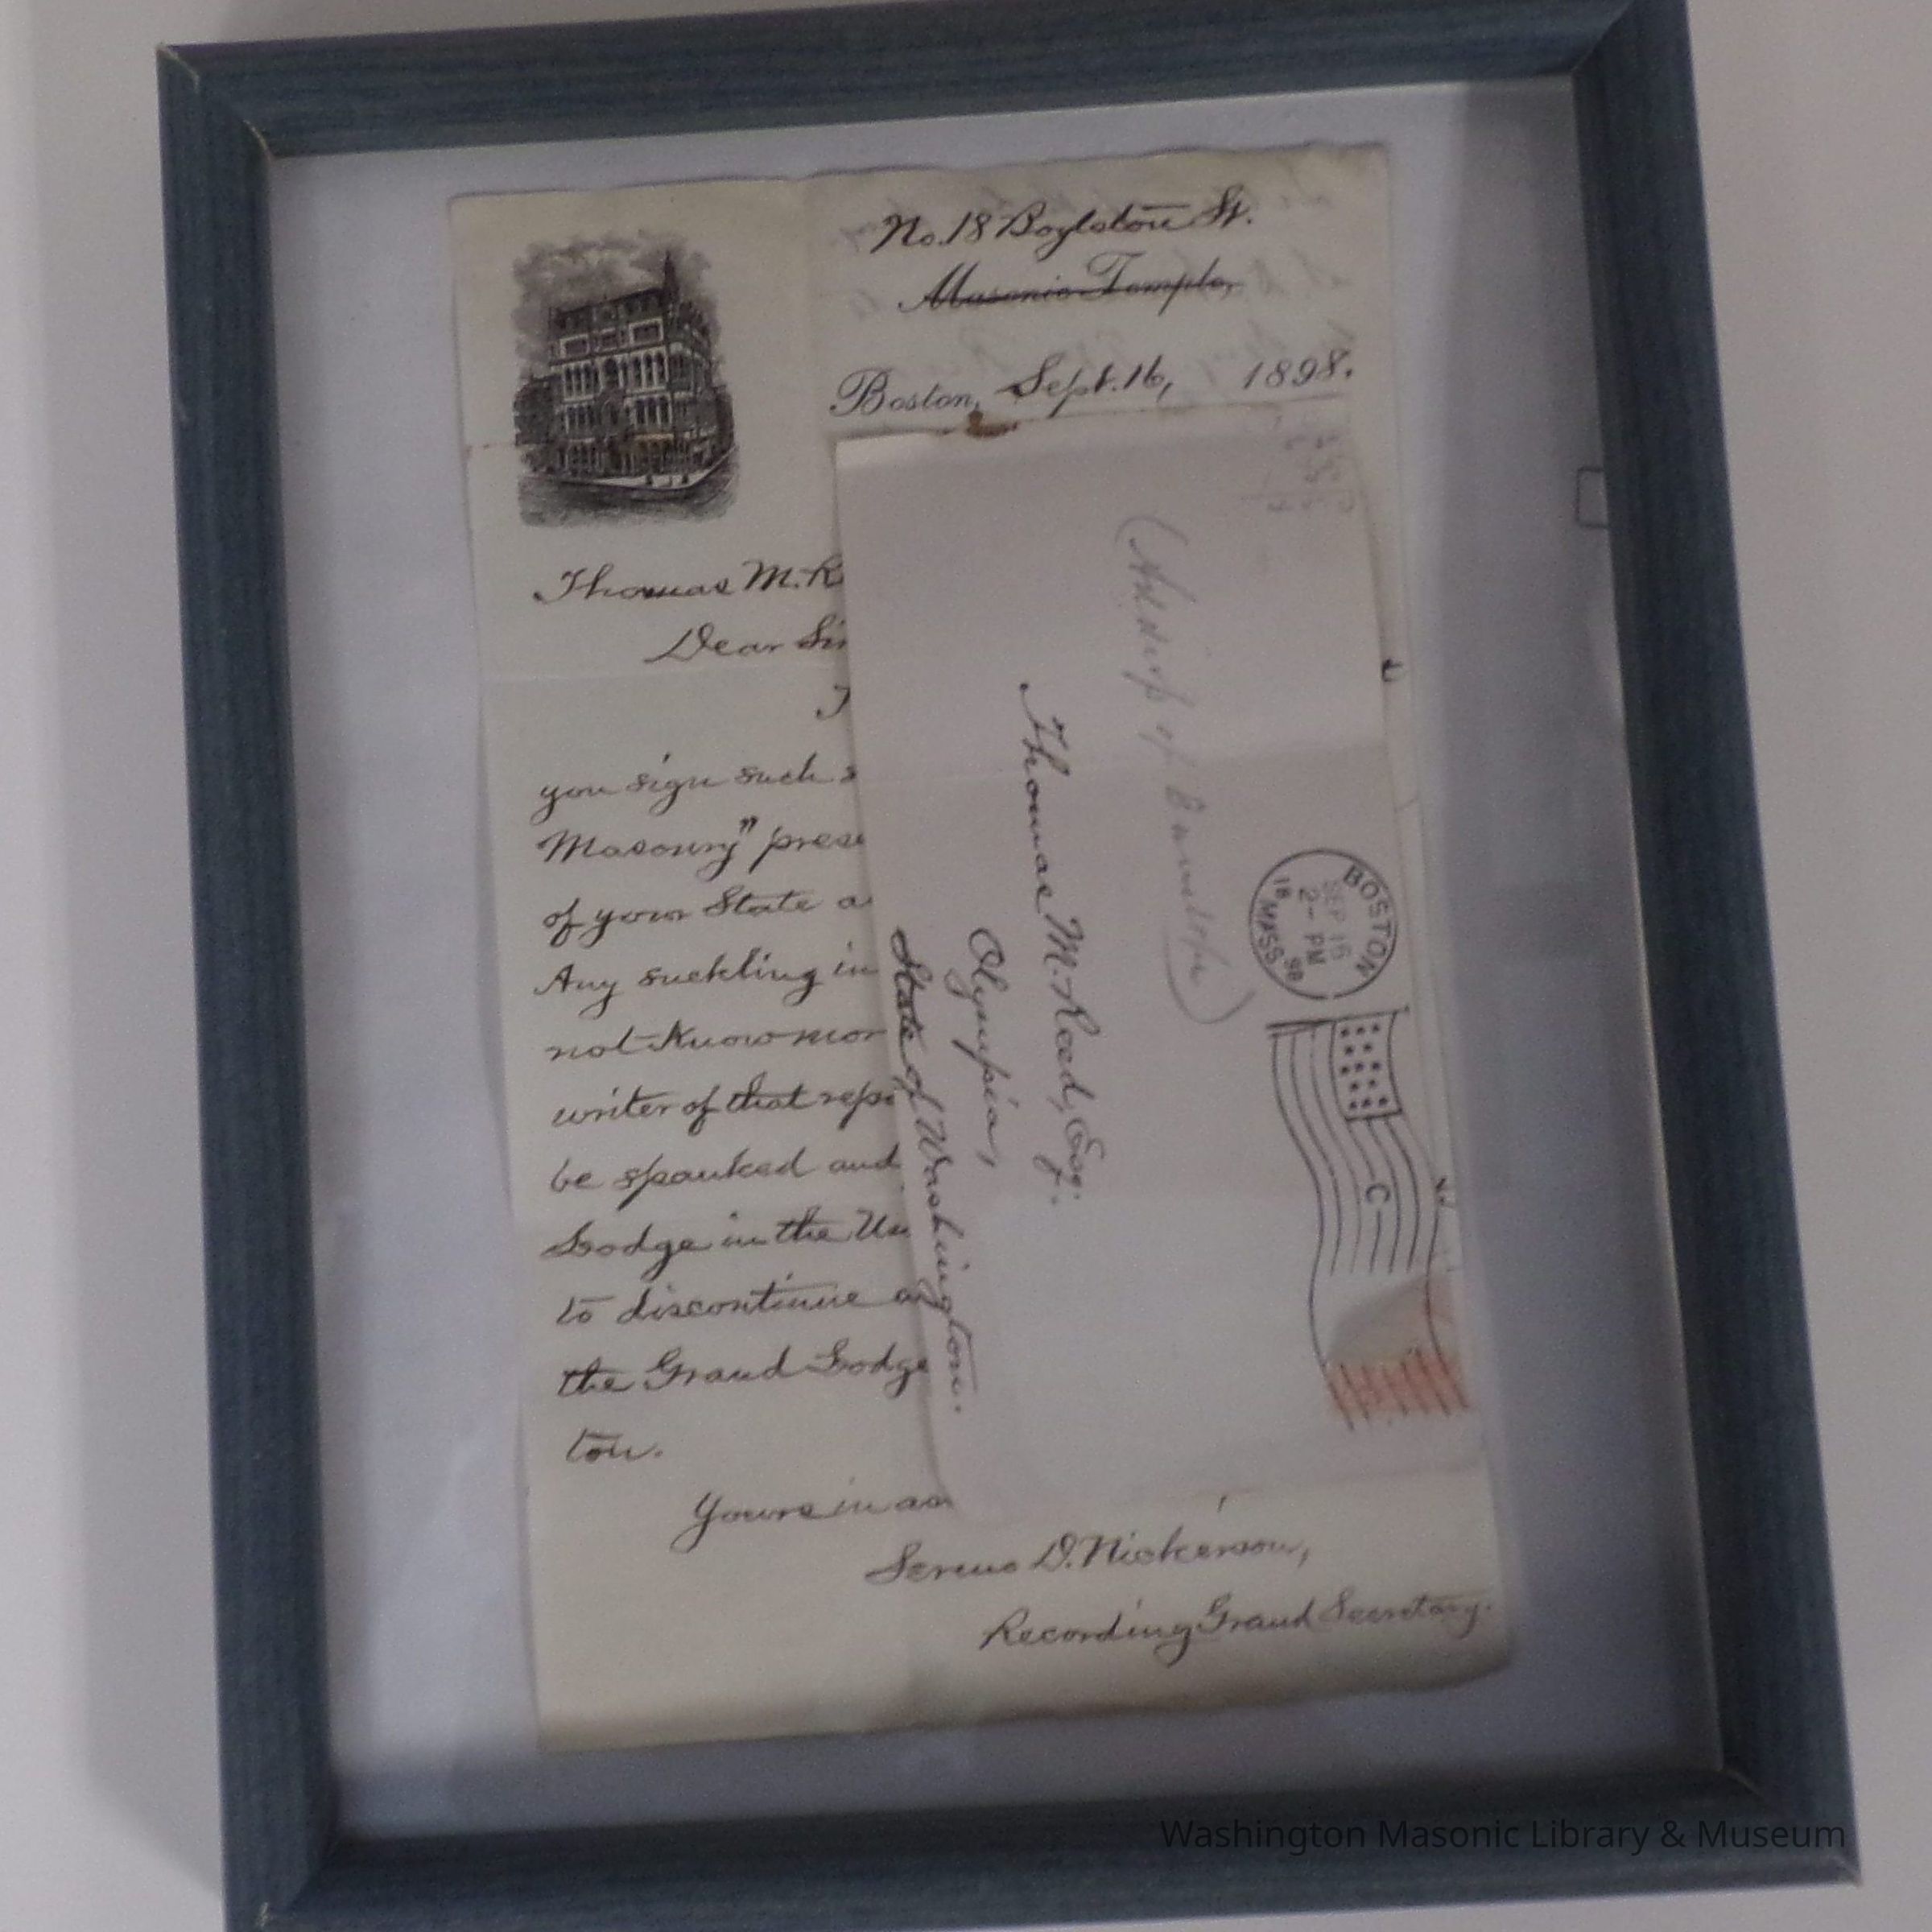 No. 18 Boylston St.
Masonic Temple,
Boston, Sept. 16, 1898.
Thomas M. R
Dear Sir
you sign such s
Masonry" prese
of your State a
Any suckling in
not know mor
writer of that repo
be spanked and
Lodge in the Un
to discontinue a
the Grand Lodge
ton.
Yours in
Sereno D. Nickerson,
Recording Grand Secretary.
Thomas M. Reed, Esq.
Olympia,
State of Washington.
BOSTON
SEP 16
2 - PM
98
MASS
C
Washington Masonic Library & Museum